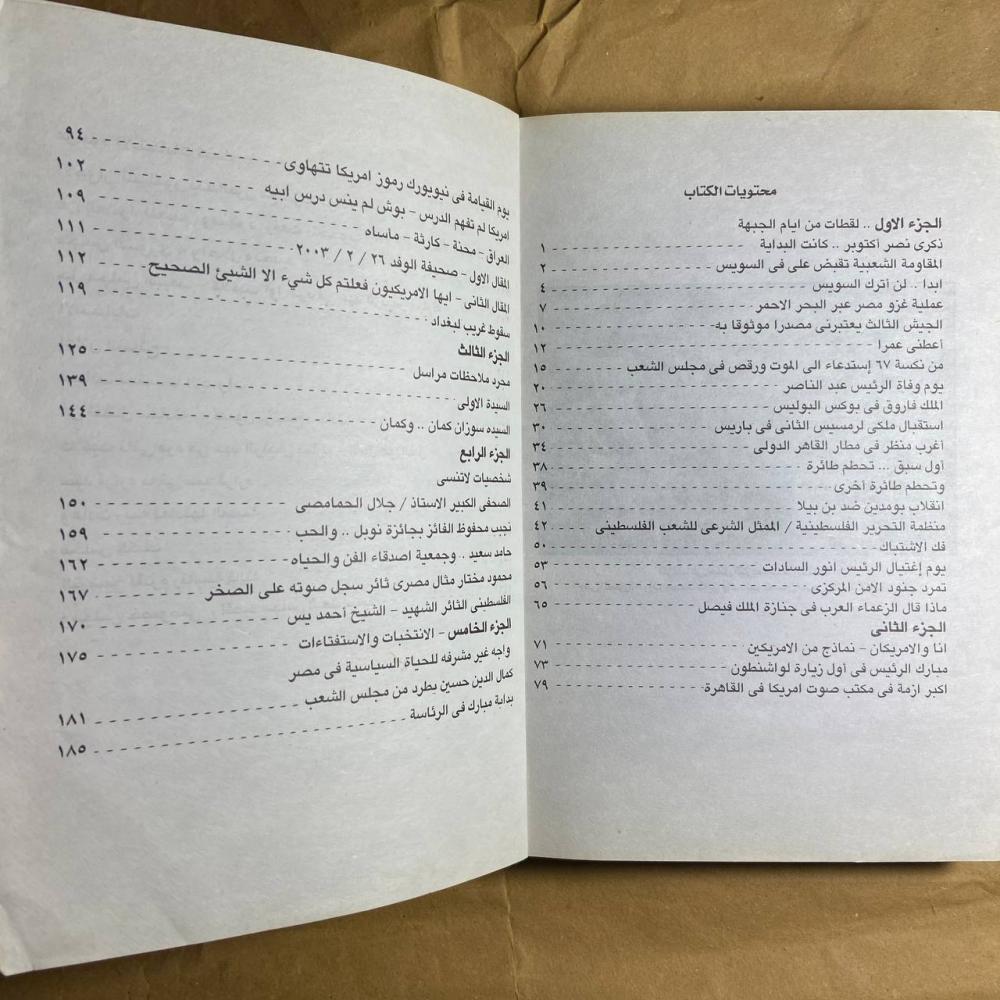 محتويات الكتاب
الجزء الاول .. لقطات من ايام الجبهة
ذكرى نصر أكتوبر .. كانت البداية ١
المقاومة الشعبية تقبض على فى السويس ٢
ابدا .. لن أترك السويس ٤
عملية غزو مصر عبر البحر الاحمر ٧
الجيش الثالث يعتبرنى مصدرا موثوقا به ١٠
أعطنى عمرا ١٢
من نكسة ٦٧ إستدعاء الى الموت ورقص فى مجلس الشعب ١٥
يوم وفاة الرئيس عبد الناصر ٢٠
الملك فاروق فى بوكس البوليس ٢٦
استقبال ملكى لرمسيس الثانى فى باريس ٣٠
أغرب منظر فى مطار القاهر الدولى ٣٤
أول سبق ... تحطم طائرة ٣٨
وتحطم طائرة أخرى ٣٩
انقلاب بومدين ضد بن بيلا ٤١
منظمة التحرير الفلسطينية / الممثل الشرعى للشعب الفلسطينى ٤٢
فك الاشتباك ٥٠
يوم إغتيال الرئيس انور السادات ٥٣
تمرد جنود الامن المركزى ٥٦
ماذا قال الزعماء العرب فى جنازة الملك فيصل ٦٥
الجزء الثانى
انا والامريكان - نماذج من الامريكين ٧١
مبارك الرئيس فى أول زيارة لواشنطون ٧٣
اكبر ازمة فى مكتب صوت امريكا فى القاهرة ٧٩
يوم القيامة فى نيويورك رموز امريكا تتهاوى ٩٤
امريكا لم تفهم الدرس - بوش لم ينس درس ابيه ١٠٢
العراق - محنة - كارثة - ماساه ١٠٩
المقال الاول - صحيفة الوفد ٢٦ / ٢ / ٢٠٠٣ ١١١
المقال الثانى - ايها الامريكيون فعلتم كل شيء الا الشيئ الصحيح ١١٢
سقوط غريب لبغداد ١١٩
الجزء الثالث
مجرد ملاحظات مراسل ١٢٥
السيدة الاولى ١٣٩
السيده سوزان كمان .. وكمان ١٤٤
الجزء الرابع
شخصيات لاتنسى
الصحفى الكبير الاستاذ / جلال الحمامصى ١٥٠
نجيب محفوظ الفائز بجائزة نوبل .. والحب ١٥٩
حامد سعيد .. وجمعية اصدقاء الفن والحياه ١٦٢
محمود مختار مثال مصرى ثائر سجل صوته على الصخر ١٦٧
الفلسطينى الثائر الشهيد - الشيخ أحمد يس ١٧٠
الجزء الخامس - الانتخبات والاستفتاءات ١٧٥
واجه غير مشرفه للحياة السياسية فى مصر
كمال الدين حسين يطرد من مجلس الشعب ١٨١
بداية مبارك فى الرئاسة ١٨٥